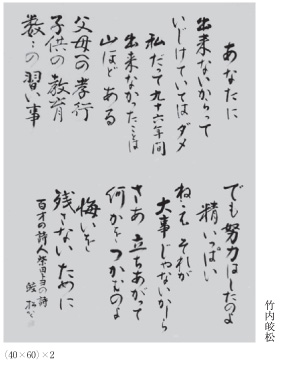 あなたに
出来ないからって
いじけていてはダメ
私だって九十六年間
出来なかったことは
山ほどある
父母への孝行
子供の教育
数々の習い事
でも努力はしたのよ
精いっぱい
ねえ それが
大事じゃないかしら
さあ 立ちあがって
何かをつかむのよ
悔いを
残さないために
百才の詩人柴田トヨの詩
皎松
竹内皎松
(40×60)×2